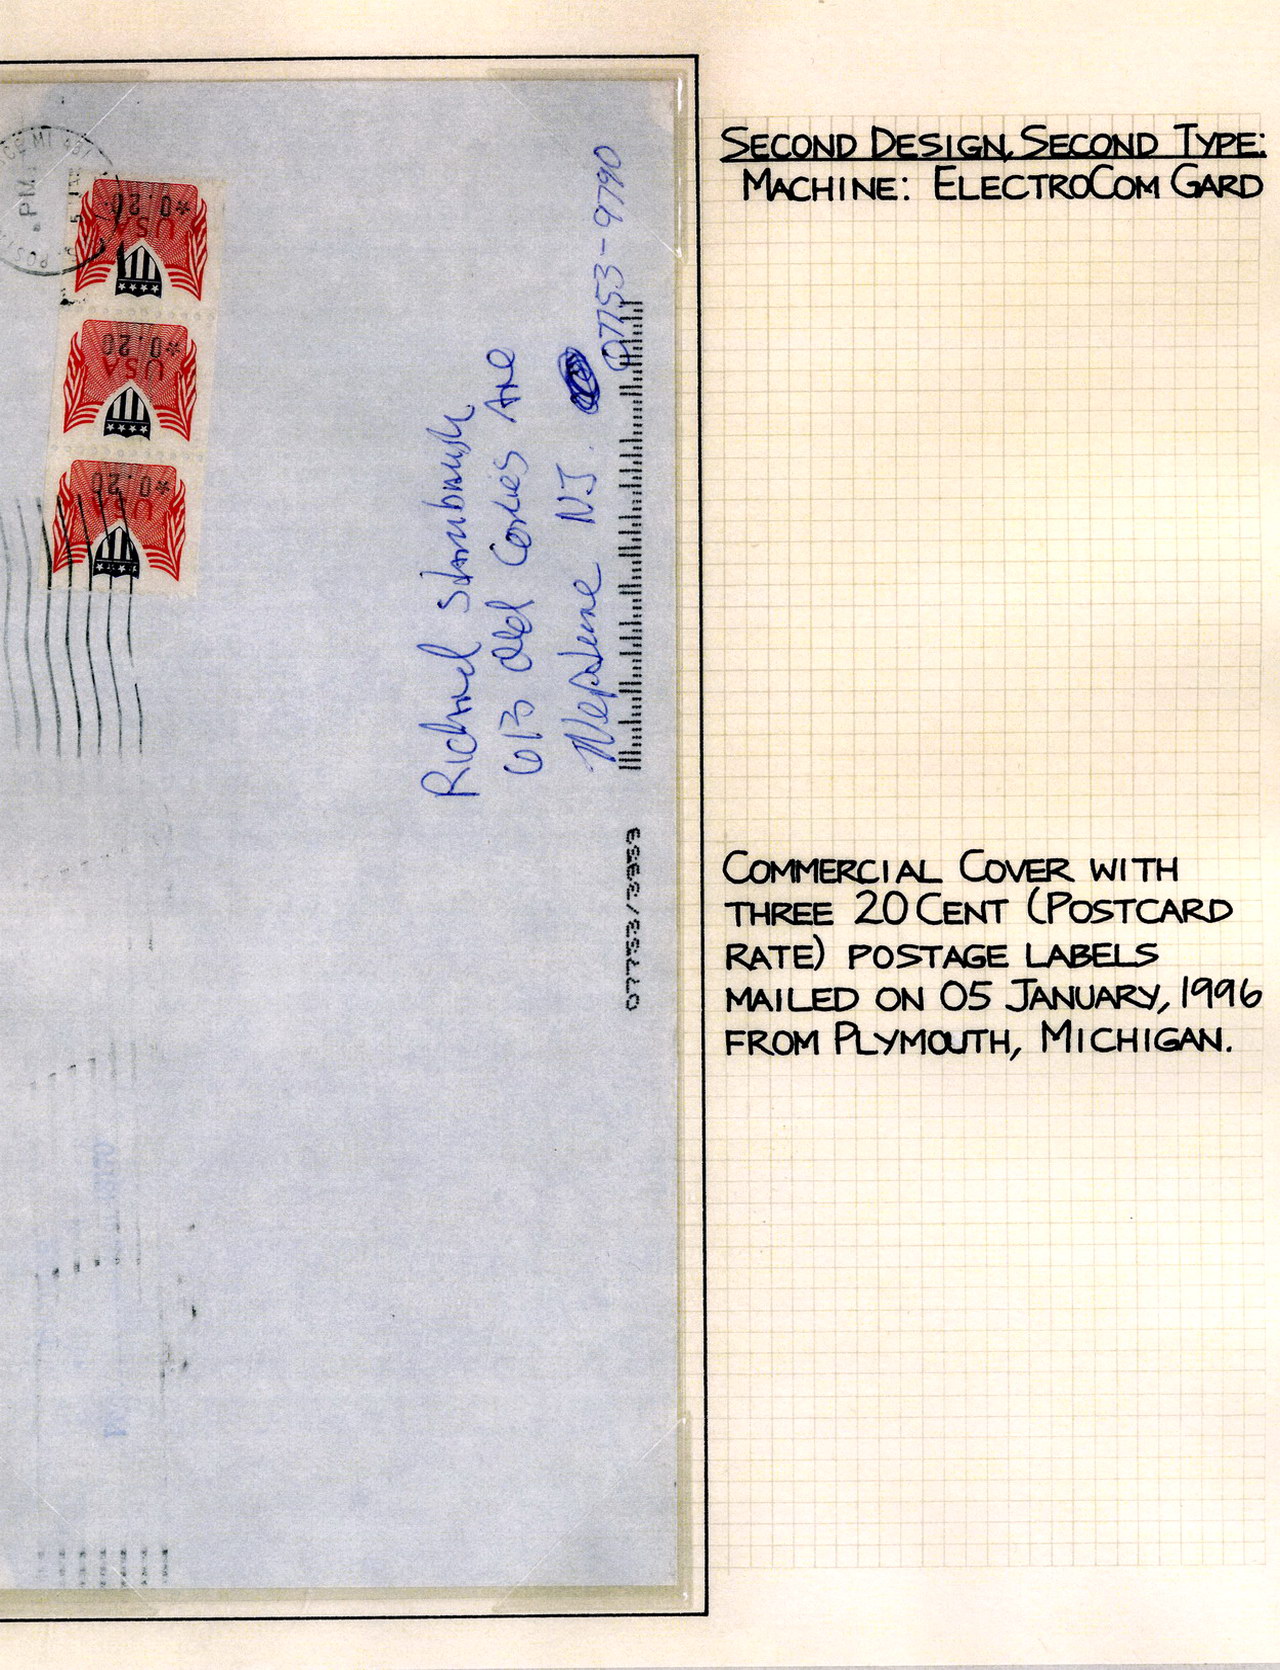 SECOND DESIGN, SECOND TYPE:
MACHINE: ELECTROCOM GARD
COMMERCIAL COVER WITH
THREE 20 CENT (POSTCARD
RATE) POSTAGE LABELS
MAILED ON 05 JANUARY, 1996
FROM PLYMOUTH, MICHIGAN.
PM
*0.20
USA
*0.20
USA
*0.20
USA
Richard
613 Old Corlies Ave
Neptune NJ.
07753-9790
07753/3333